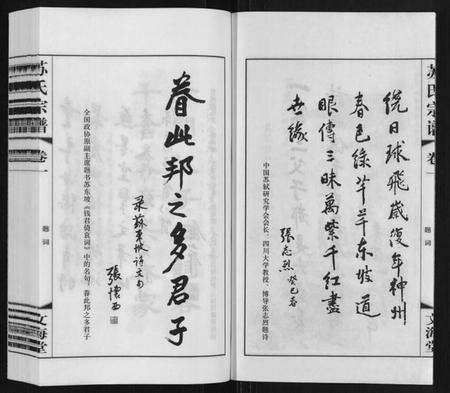 苏氏宗谱
卷一
题词
绕日球飛歲復年神州
春色綠芊芊东坡道
眼傳三昧萬紫千红盡
世缘
張志烈 癸巳春
中国苏轼研究学会会长、四川大学教授、博导张志烈题诗
文海堂
苏氏宗谱
卷一
题词
眷此邦之多君子
录蘇東坡詩文句
張懷西
全国政协原副主席题书苏东坡《钱君倚哀词》中的名句：眷此邦之多君子
文海堂